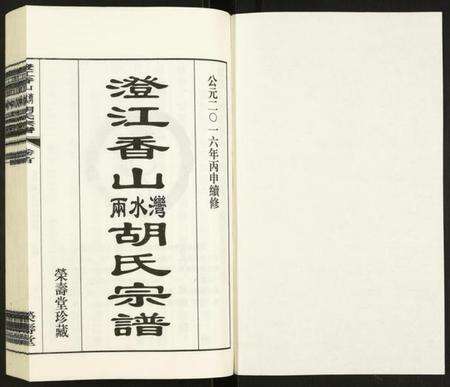 公元二〇一六年丙申續修
澄江香山
兩水灣
胡氏宗譜
榮壽堂珍藏